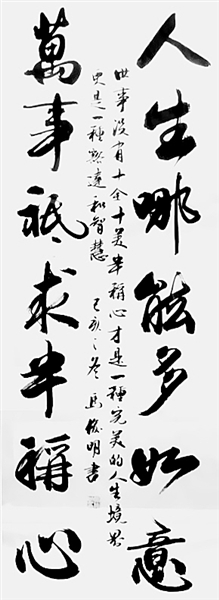 人生哪能多如意
萬事祗求半稱心
世事没有十全十美半稱心才是一種完美的人生境界
更是一種豁達和智慧 己亥之冬 馬俊明書